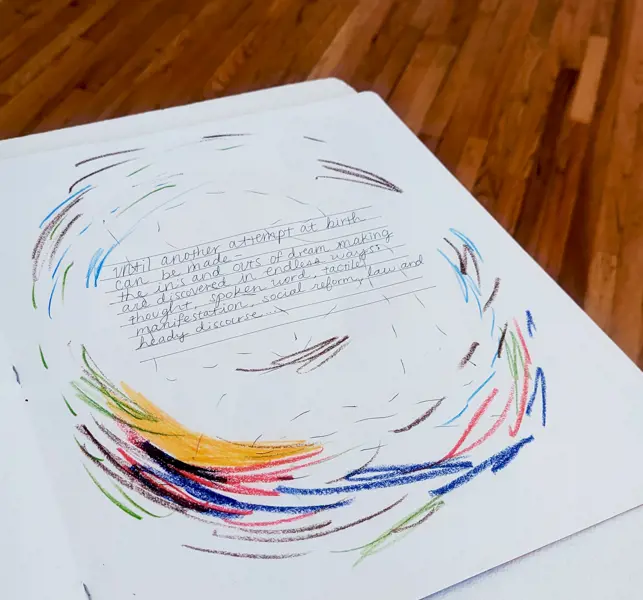 until another attempt at birth
can be made –
the in's and out's of dream making
are discovered in endless ways:
thought, spoken word, tactile
manifestation, social reform, law and
heady discourse...